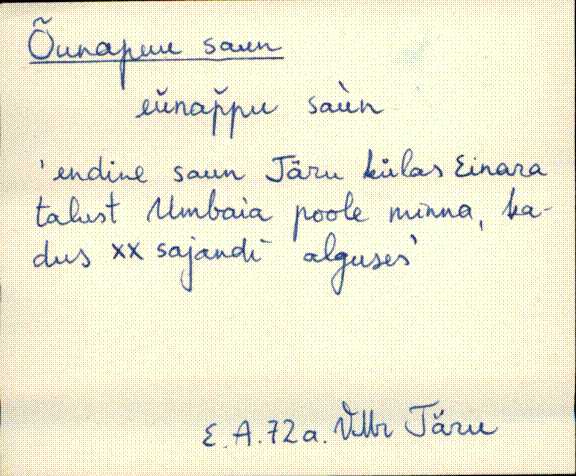 Õunapuu saun
eŭnap̆pu saùn
'endine saun Järu külas Einara
talust Umbaia poole minna, ka-
dus XX sajandi alguses'
E. A. 72a. Järu